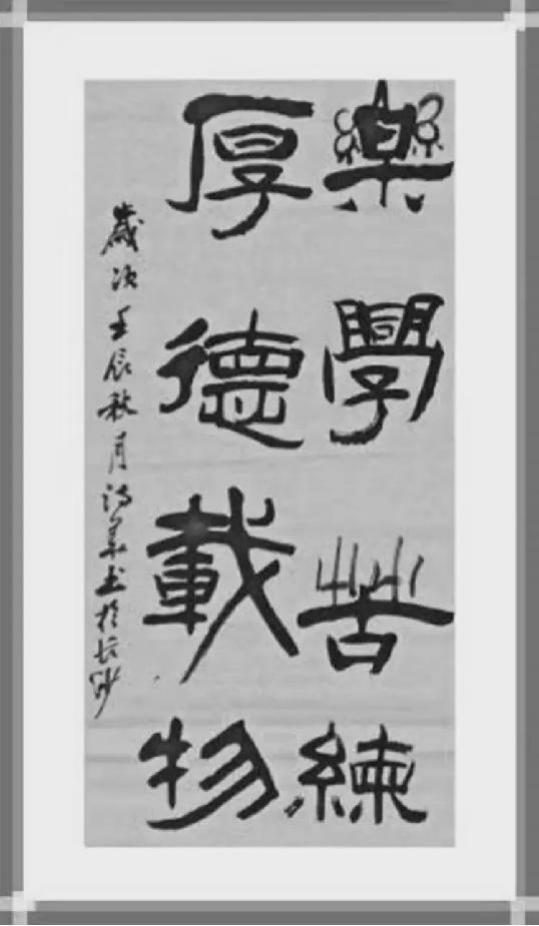 樂學苦練
厚德載物
歲次壬辰秋月詩華書於長沙